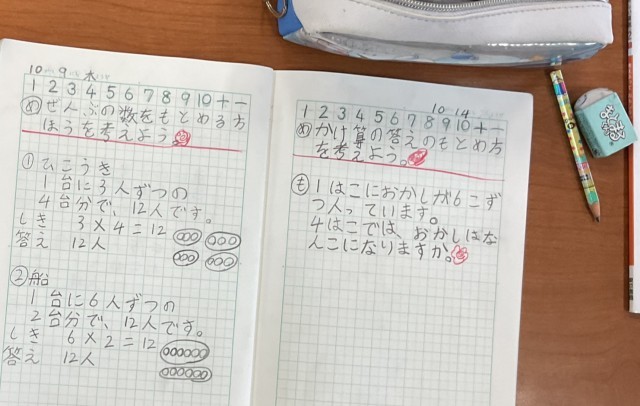 10 9 木
1 2 3 4 5 6 7 8 9 10 + −
め ぜんぶの数をもとめる方
ほうを考えよう。
① ひこうき
1台に3人ずつの
4台分で、12人です。
しき 3×4=12
答え 12人
② 船
1台に6人ずつの
2台分で、12人です。
しき 6×2=12
答え 12人
10 14
1 2 3 4 5 6 7 8 9 10 + −
め かけ算の答えのもとめ方
を考えよう。
も 1はこにおかしが6こず
つ入っています。
4はこでは、おかしはな
んこになりますか。